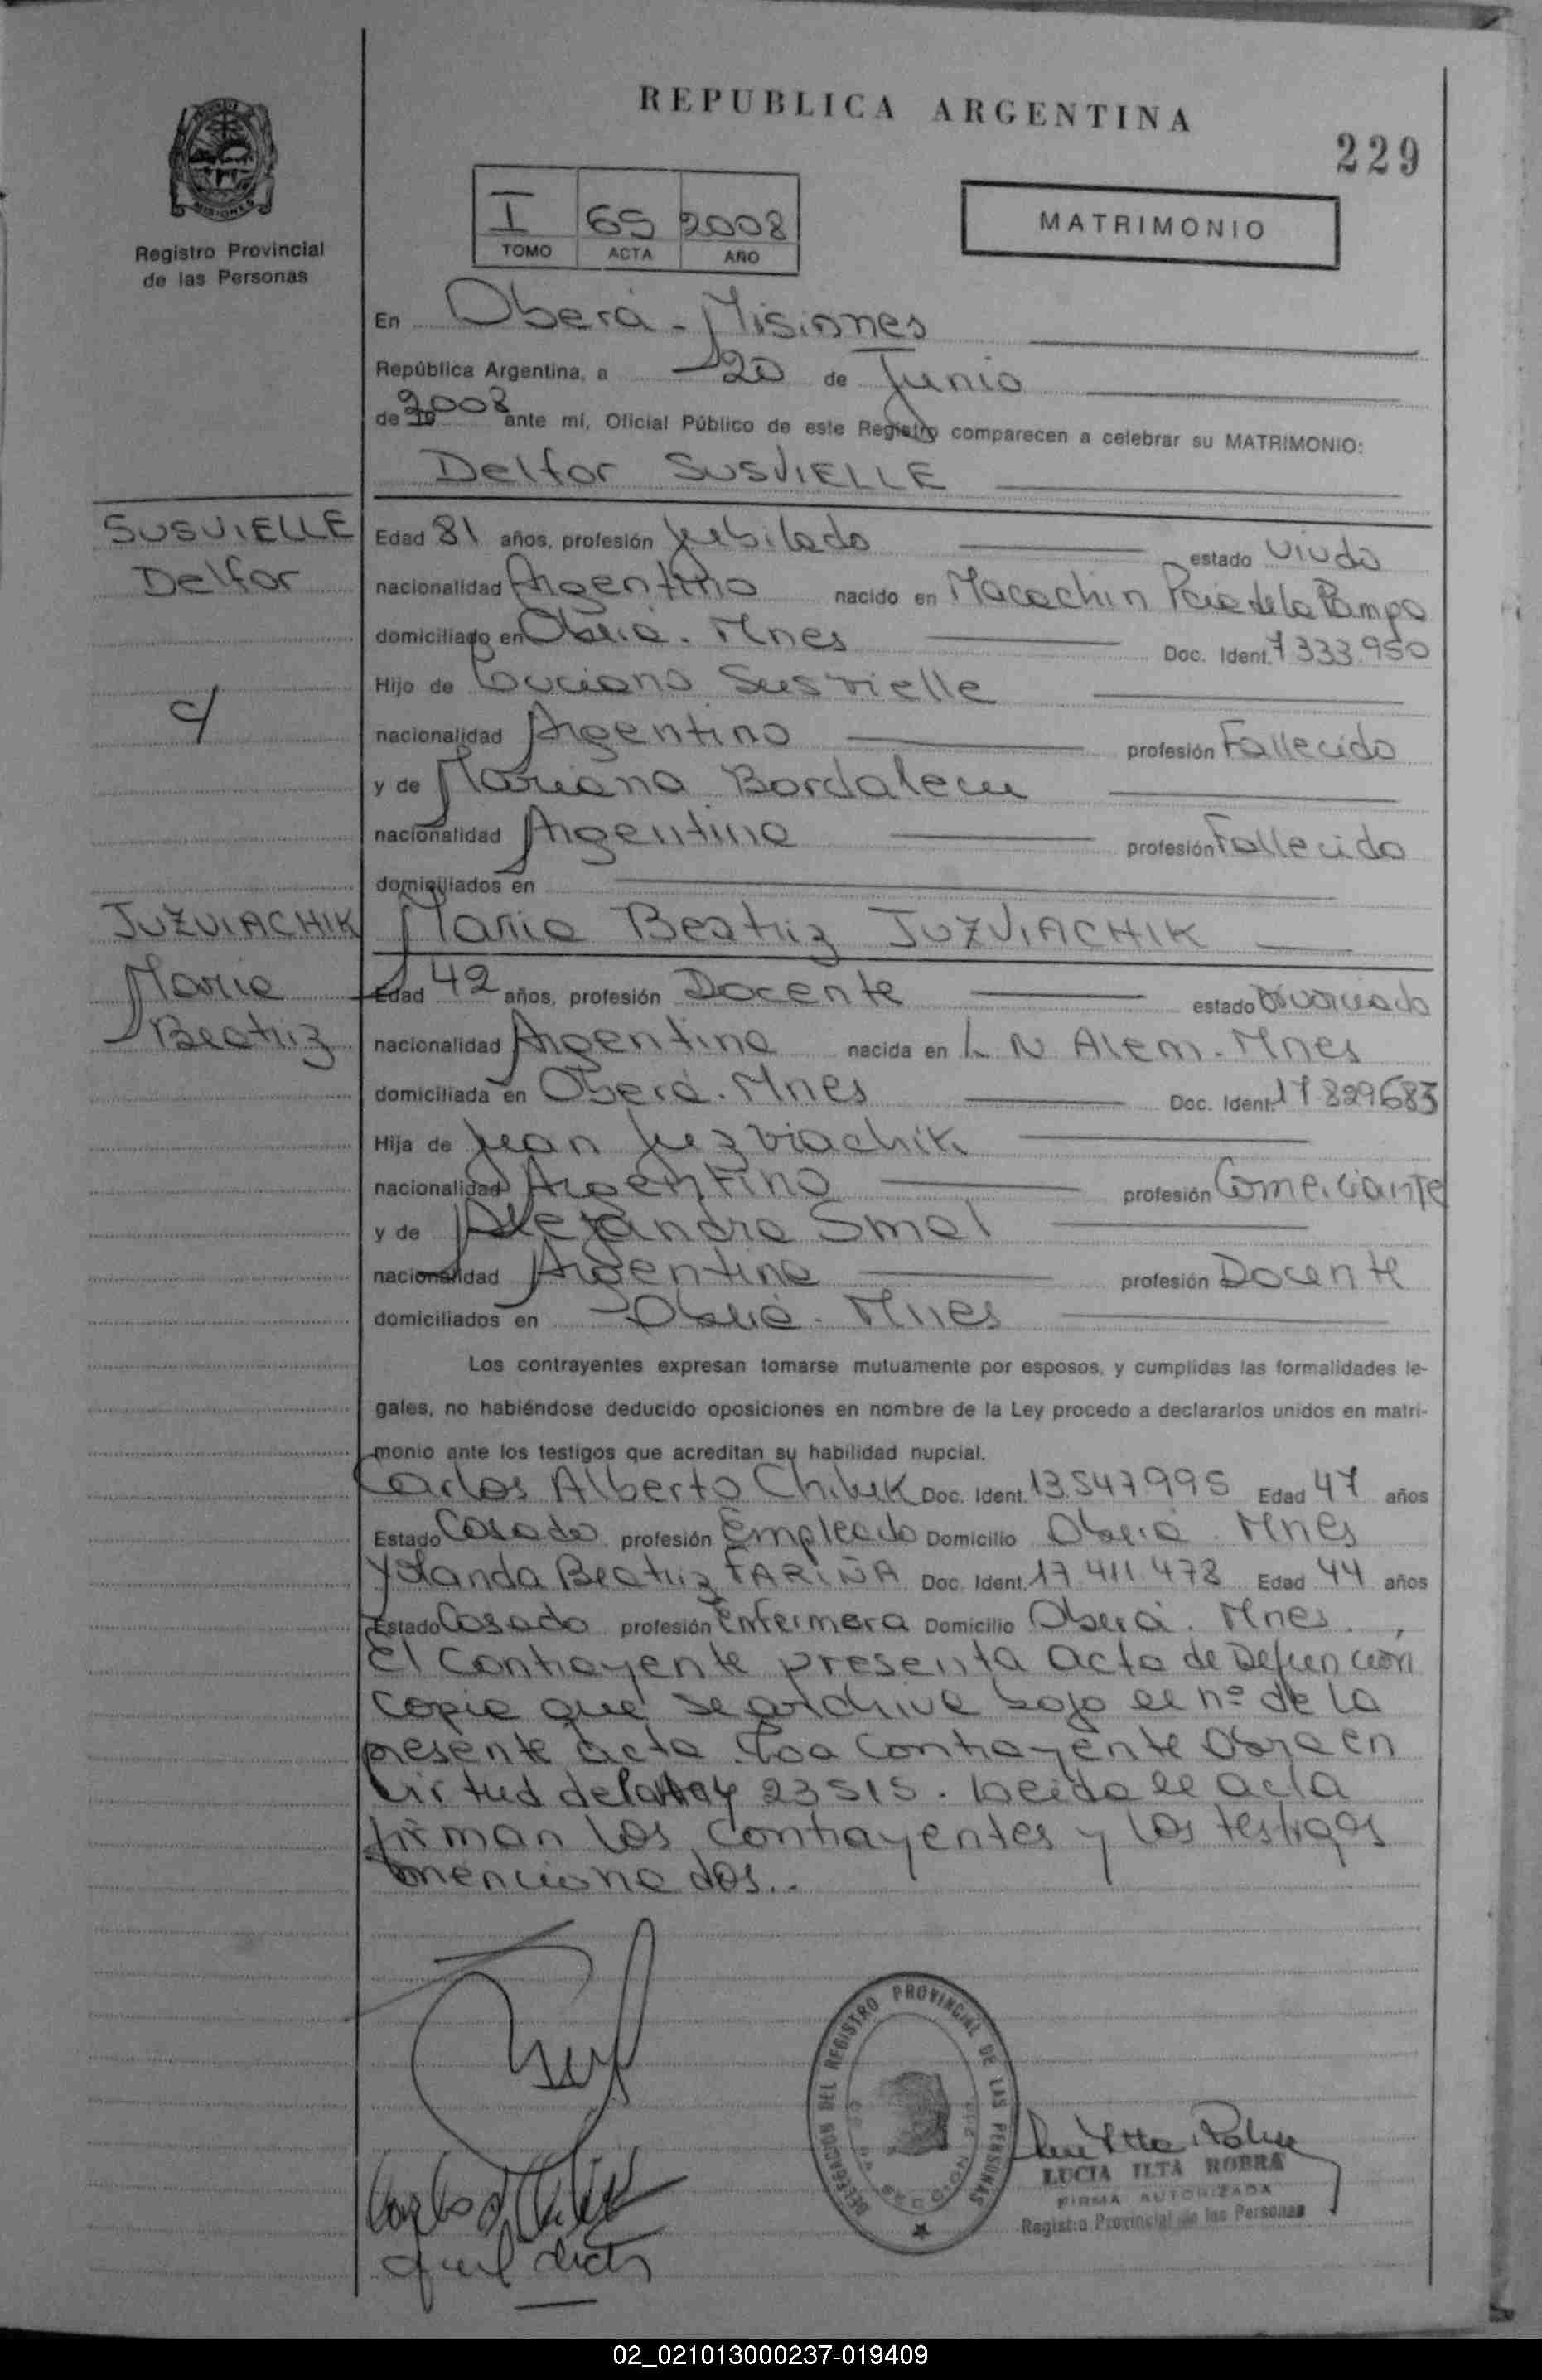 REPUBLICA ARGENTINA
229
MISIONES
Registro Provincial
de las Personas
I 65 2008
TOMO ACTA AÑO
MATRIMONIO
En Oberá - Misiones
República Argentina, a 20 de Junio
de 19 2008 ante mi, Oficial Público de este Registro comparecen a celebrar su MATRIMONIO:
Delfor SUSVIELLE
SUSVIELLE
Delfor
c/
Edad 81 años, profesión Jubilado estado Viudo
nacionalidad Argentino nacido en Macachin Pcia de la Pampa
domiciliado en Oberá. Mnes Doc. Ident. 7 333.950
Hijo de Luciano Susvielle
nacionalidad Argentino profesión Fallecido
y de Mariana Bordalecu
nacionalidad Argentina profesión Fallecida
domiciliados en
JUZVIACHIK
Maria
Beatriz
Maria Beatriz JUZVIACHIK
Edad 42 años, profesión Docente estado Divorciada
nacionalidad Argentina nacida en L N Alem. Mnes
domiciliada en Oberá. Mnes Doc. Ident. 17.829683
Hija de Juan Juzviachik
nacionalidad Argentino profesión Comerciante
y de Alejandra Smal
nacionalidad Argentina profesión Docente
domiciliados en Oberá. Mnes
Los contrayentes expresan tomarse mutuamente por esposos, y cumplidas las formalidades le-
gales, no habiéndose deducido oposiciones en nombre de la Ley procedo a declararlos unidos en matri-
monio ante los testigos que acreditan su habilidad nupcial.
Carlos Alberto Doc. Ident. 13.547995 Edad 47 años
Estado Casado profesión Empleado Domicilio Oberá. Mnes
Yolanda Beatriz FARIÑA Doc. Ident. 17.411.478 Edad 44 años
Estado Casada profesión Enfermera Domicilio Oberá. Mnes.
El Contrayente presenta acta de Defuncion
copia que se archiva bajo el nº de la
presente acta. La Contrayente Obra en
virtud de la Ley 23515. Leida el acta
firman los contrayentes y los testigos
mencionados..
DELEGACION DEL REGISTRO PROVINCIAL DE LAS PERSONAS
LUCIA ILTA ROBRA
FIRMA AUTORIZADA
Registro Provincial de las Personas
02_021013000237-019409